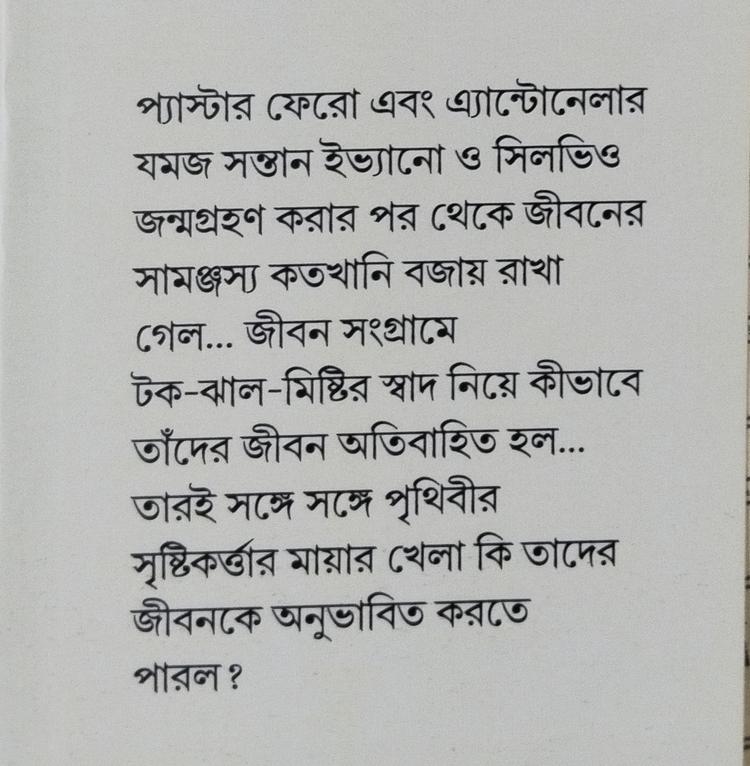 প্যাস্টার ফেরো এবং এ্যান্টোনেলার
যমজ সন্তান ইভ্যানো ও সিলভিও
জন্মগ্রহণ করার পর থেকে জীবনের
সামঞ্জস্য কতখানি বজায় রাখা
গেল... জীবন সংগ্রামে
টক-ঝাল-মিষ্টির স্বাদ নিয়ে কীভাবে
তাঁদের জীবন অতিবাহিত হল...
তারই সঙ্গে সঙ্গে পৃথিবীর
সৃষ্টিকর্ত্তার মায়ার খেলা কি তাদের
জীবনকে অনুভাবিত করতে
পারল?